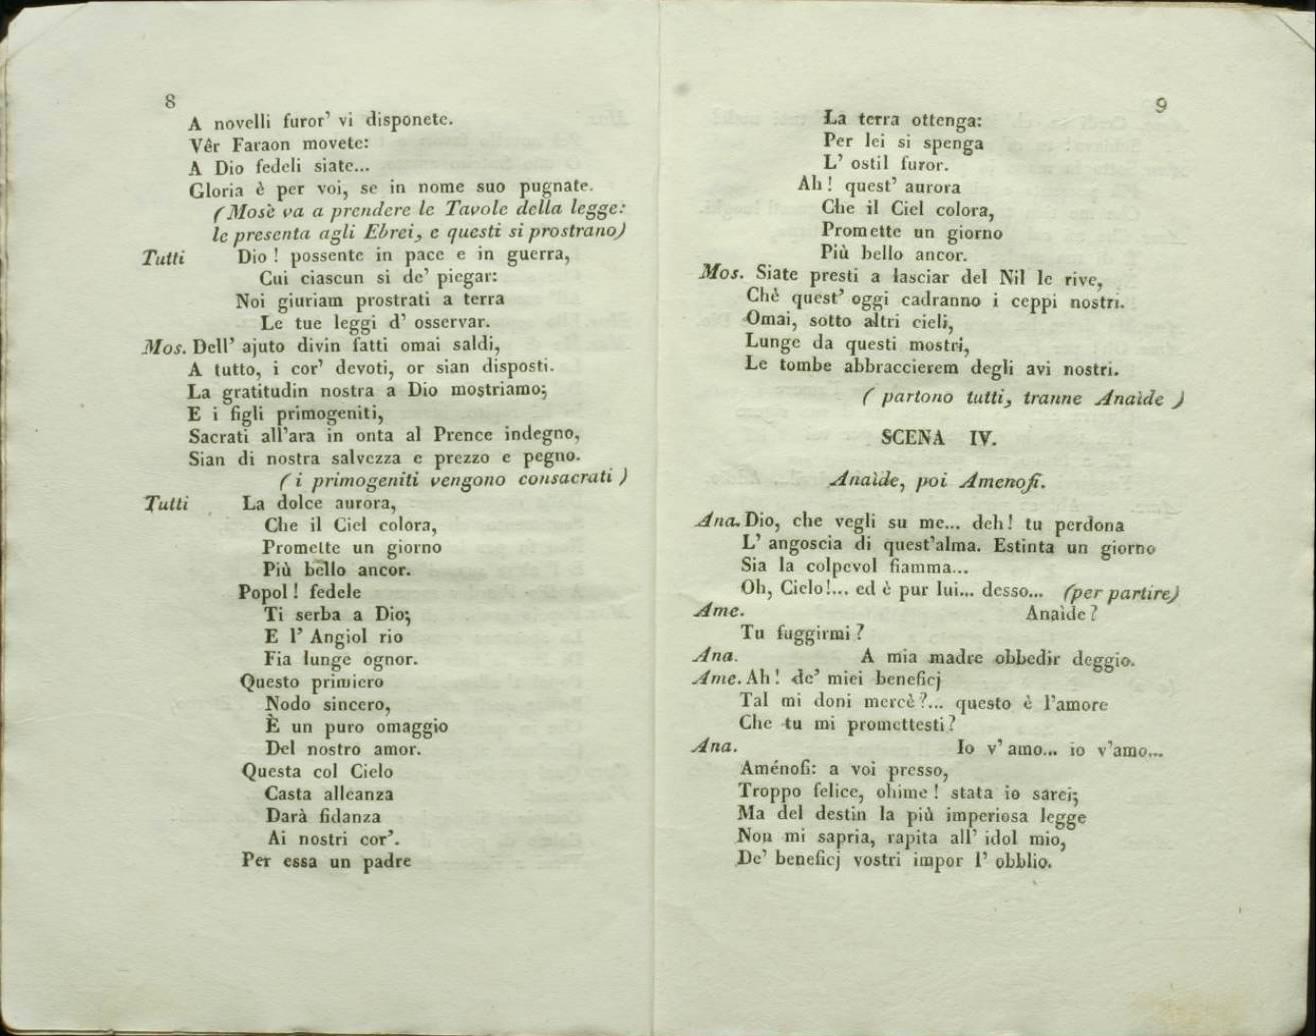 8
A novelli furor' vi disponete.
Vêr Faraon movete:
A Dio fedeli siate...
Gloria è per voi, se in nome suo pugnate.
(Mosè va a prendere le Tavole della legge:
le presenta agli Ebrei, e questi si prostrano)
Tutti Dio ! possente in pace e in guerra,
Cui ciascun si de' piegar:
Noi giuriam prostrati a terra
Le tue leggi d' osservar.
Mos. Dell' ajuto divin fatti omai saldi,
A tutto, i cor' devoti, or sian disposti.
La gratitudin nostra a Dio mostriamo;
E i figli primogeniti,
Sacrati all'ara in onta al Prence indegno,
Sian di nostra salvezza e prezzo e pegno.
( i primogeniti vengono consacrati )
Tutti La dolce aurora,
Che il Ciel colora,
Promette un giorno
Più bello ancor.
Popol ! fedele
Ti serba a Dio;
E l' Angiol rio
Fia lunge ognor.
Questo primiero
Nodo sincero,
È un puro omaggio
Del nostro amor.
Questa col Cielo
Casta alleanza
Darà fidanza
Ai nostri cor'.
Per essa un padre
9
La terra ottenga:
Per lei si spenga
L' ostil furor.
Ah ! quest' aurora
Che il Ciel colora,
Promette un giorno
Più bello ancor.
Mos. Siate presti a lasciar del Nil le rive,
Chè quest' oggi cadranno i ceppi nostri.
Omai, sotto altri cieli,
Lunge da questi mostri,
Le tombe abbraccierem degli avi nostri.
( partono tutti, tranne Anaìde )
SCENA IV.
Anaìde, poi Amenofi.
Ana. Dio, che vegli su me... deh! tu perdona
L' angoscia di quest'alma. Estinta un giorno
Sia la colpevol fiamma...
Oh, Cielo!... ed è pur lui... desso... (per partire)
Ame. Anaìde ?
Tu fuggirmi ?
Ana. A mia madre obbedir deggio.
Ame. Ah ! de' miei beneficj
Tal mi doni mercè ?... questo è l'amore
Che tu mi promettesti ?
Ana. Io v' amo... io v'amo...
Aménofi: a voi presso,
Troppo felice, ohime ! stata io sarei;
Ma del destin la più imperiosa legge
Non mi sapria, rapita all' idol mio,
De' beneficj vostri impor l' obblio.